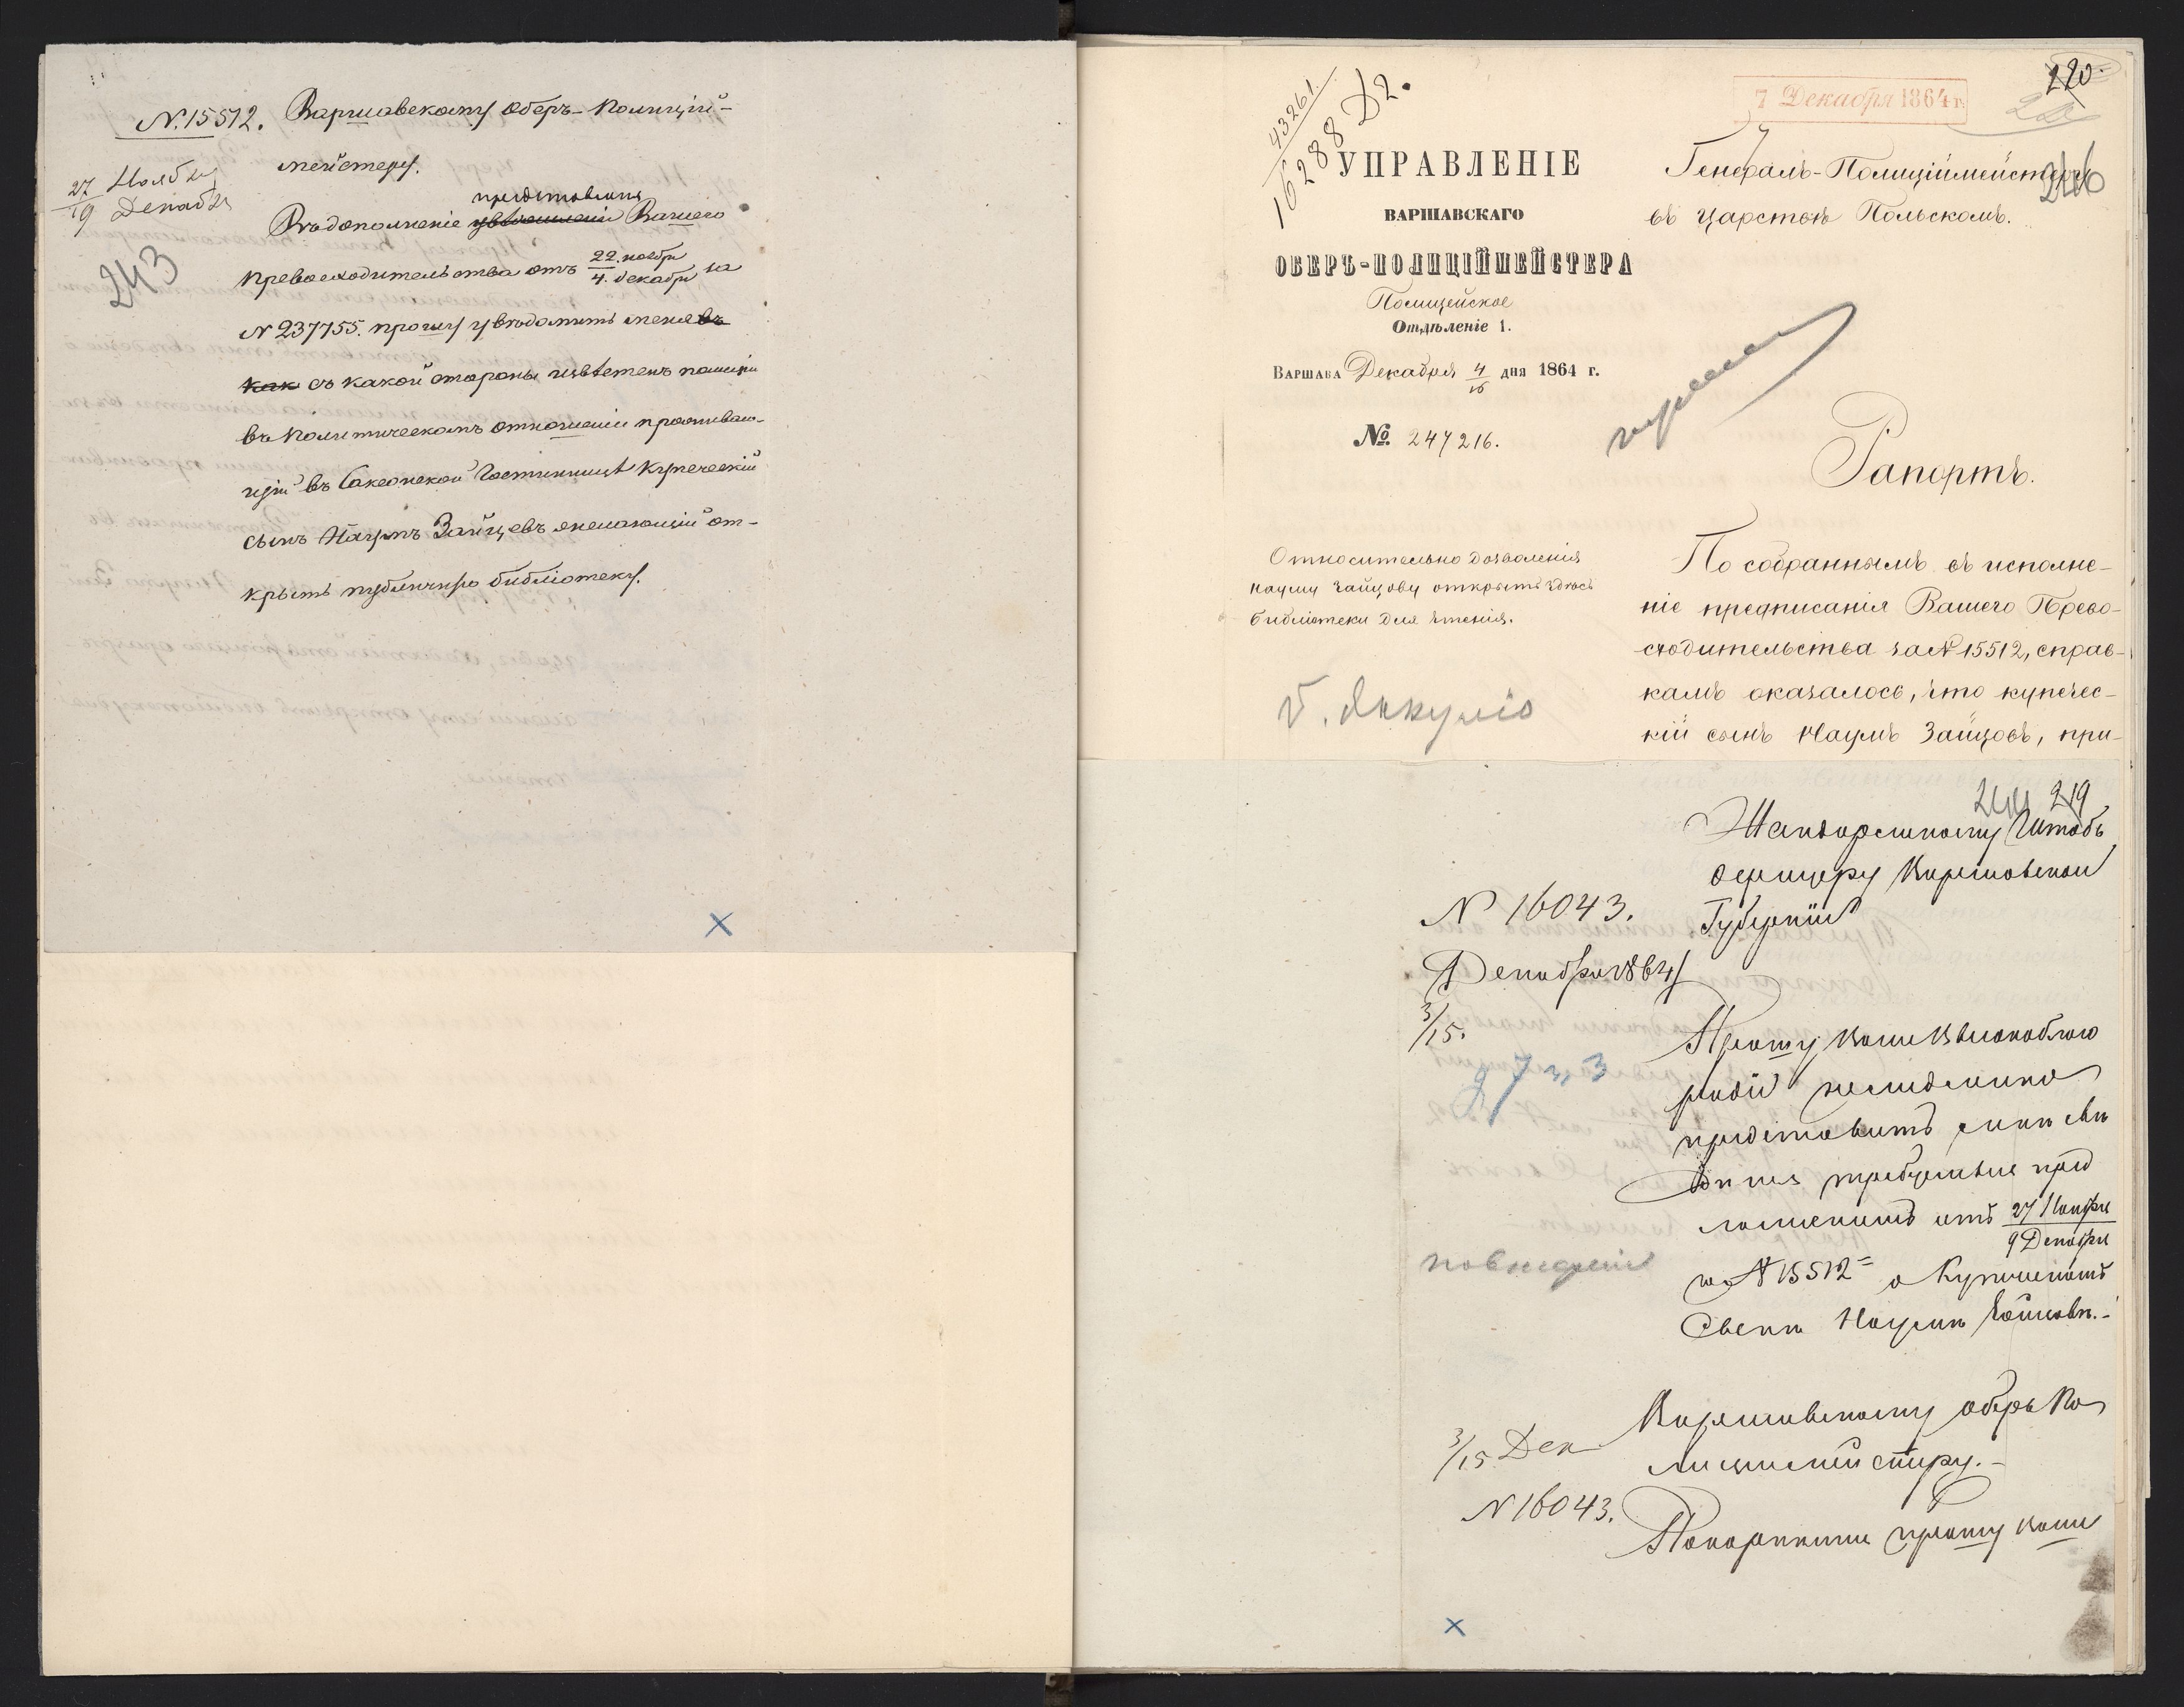 № 15512. Варшавскому Оберъ-Полицій-
мейстеру.
27 Ноября
9 Декабря
243
представленія
Въ дополненіе увѣдомленія Вашего
Превосходительства отъ 22. ноября / 4. декабря за
№ 237755. прошу увѣдомить меня въ
как съ какой стороны извѣстенъ полиціи
въ политическомъ отношеніи проживаю-
щій въ Саксонской Гостинницѣ купеческій
сынъ Наумъ Зайцевъ желающій от-
крыть публичную библіотеку.
43261.
16288 Д2.
7 Декабря 1864 г.
220.
246
УПРАВЛЕНІЕ
ВАРШАВСКАГО
ОБЕРЪ-ПОЛИЦІЙМЕЙСТЕРА
Полицейское
Отдѣленіе 1.
Варшава Декабря 4/16 дня 1864 г.
№ 247216.
Генералъ-Полиціймейстеру
въ Царствѣ Польскомъ.
Рапортъ.
Относительно дозволенія
Науму Зайцову открыть здѣсь
библіотеки для чтенія.
По собраннымъ въ исполне-
ніе предписанія Вашего Прево-
сходительства за № 15512, справ-
камъ оказалось, что купечес-
кій сынъ Наумъ Зайцовъ, при-
244 219
Жандармскому Штабъ
Офицеру Варшавской
Губерніи
№ 16043.
Декабря 1864
3/15.
Прошу Ваше Высокоблаго
родій немедленно
представить мнѣ свѣ
дѣнія требуемыя пред
ложеніемъ отъ 27 Ноября / 9 Декабря
за № 15512 о Купеческомъ
Сынѣ Наумѣ Зайцовѣ.-
Варшавскому Оберъ По
лицмейстеру.-
3/15 Дек
№ 16043.
Покорнѣйше прошу Ваше